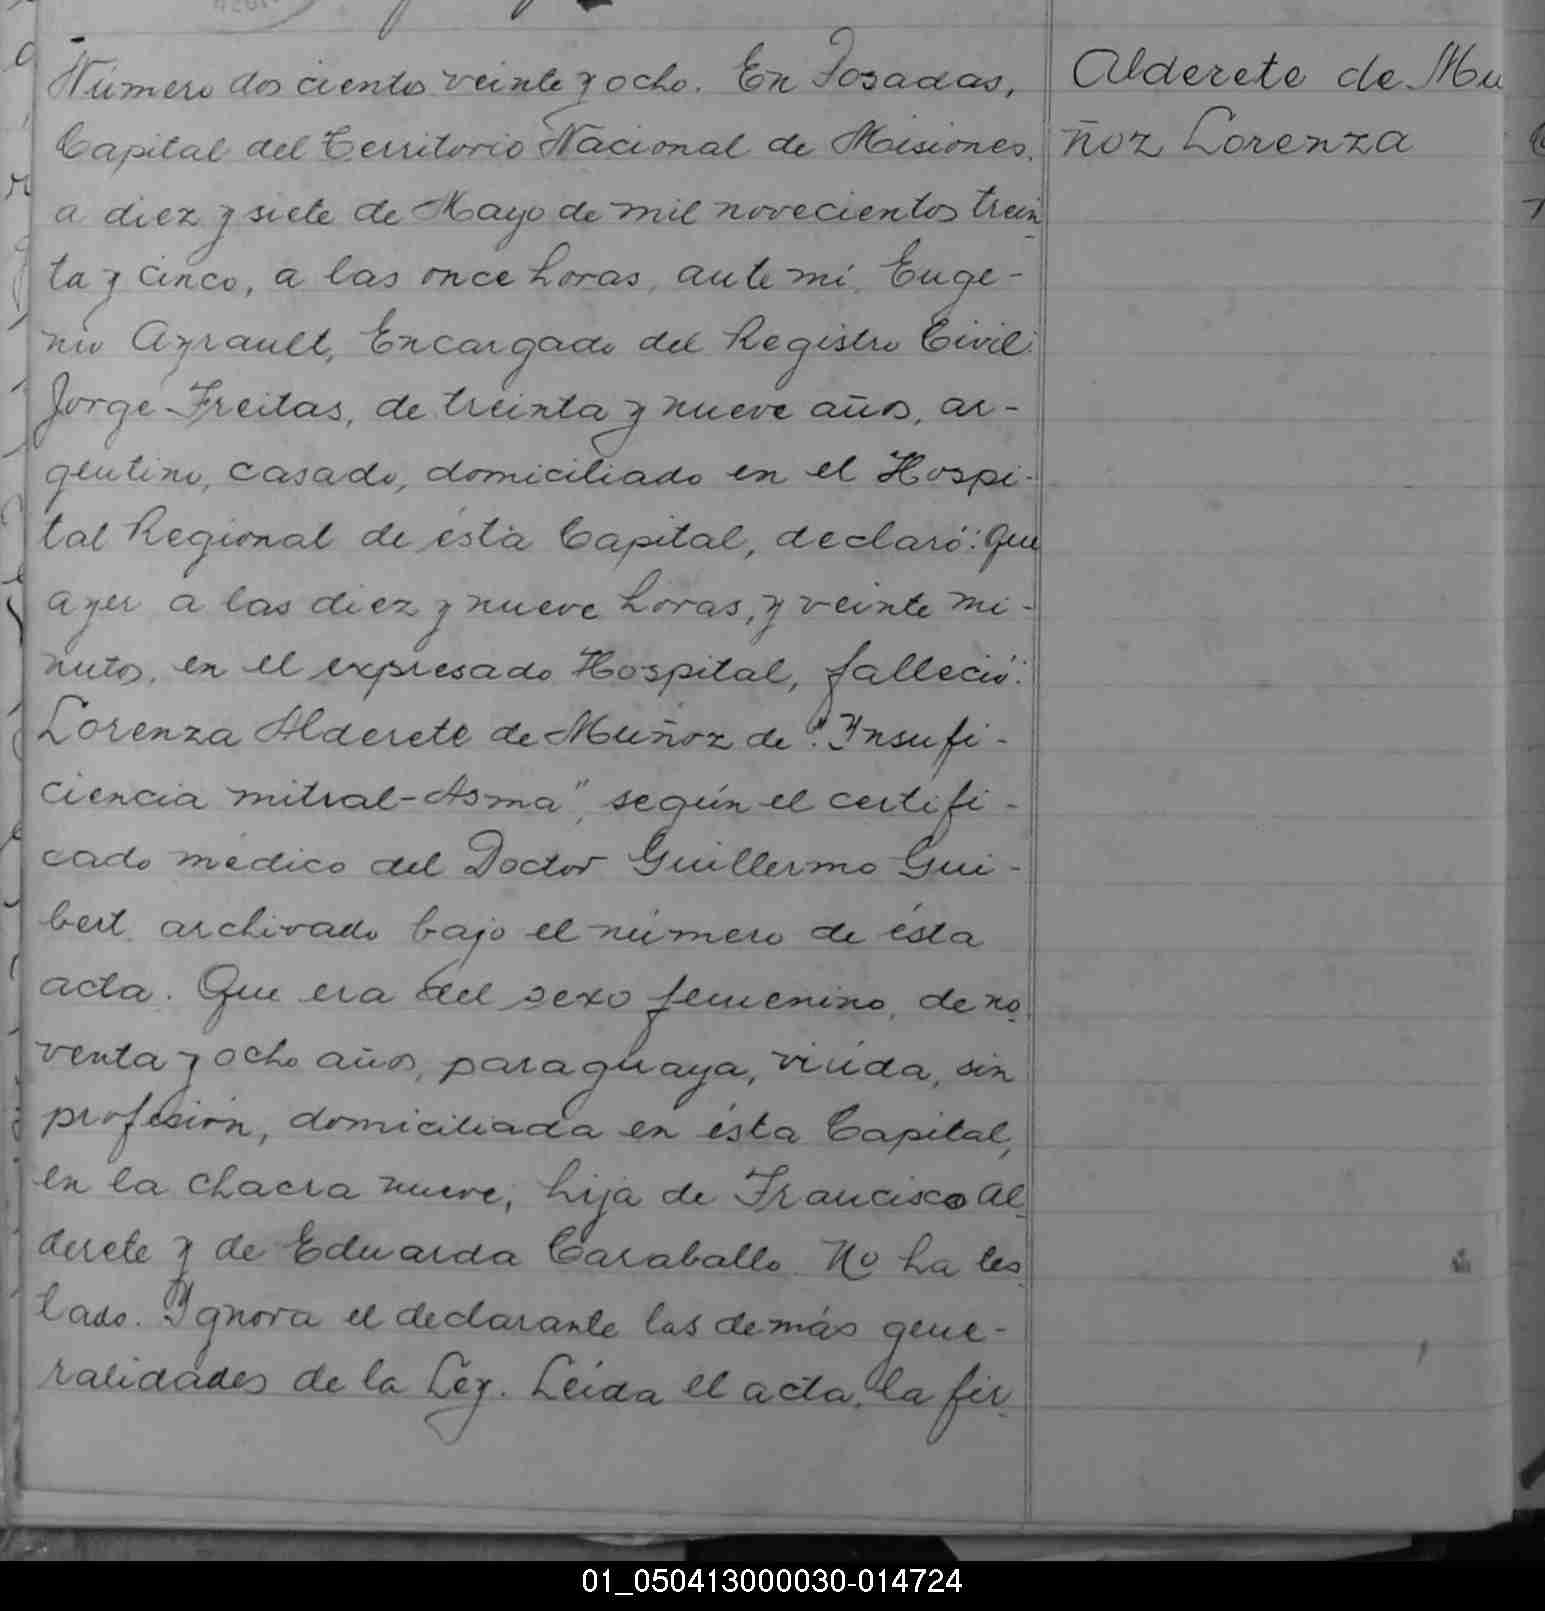 Número dos cientos veinte y ocho. En Posadas,
Capital del Territorio Nacional de Misiones,
a diez y siete de Mayo de mil novecientos trein
ta y cinco, a las once horas, ante mi, Euge-
nio Ayrault, Encargado del Registro Civil:
Jorge Freitas, de treinta y nueve años, ar-
gentino, casado, domiciliado en el Hospi-
tal Regional de ésta Capital, declaró: Que
ayer a las diez y nueve horas, y veinte mi-
nutos, en el expresado Hospital, falleció:
Lorenza Alderete de Muñoz de: "Insufi-
ciencia mitral-Asma", según el certifi-
cado médico del Doctor Guillermo Gui-
bert archivado bajo el número de ésta
acta. Que era del sexo femenino, de no
venta y ocho años, paraguaya, viuda, sin
profesión, domiciliada en ésta Capital,
en la chacra nueve, hija de Francisco Al
derete y de Eduarda Caraballo. No ha tes
tado. Ignora el declarante las demás gene-
ralidades de la Ley. Leída el acta, la fir
Alderete de Mu
ñoz Lorenza
01_050413000030-014724